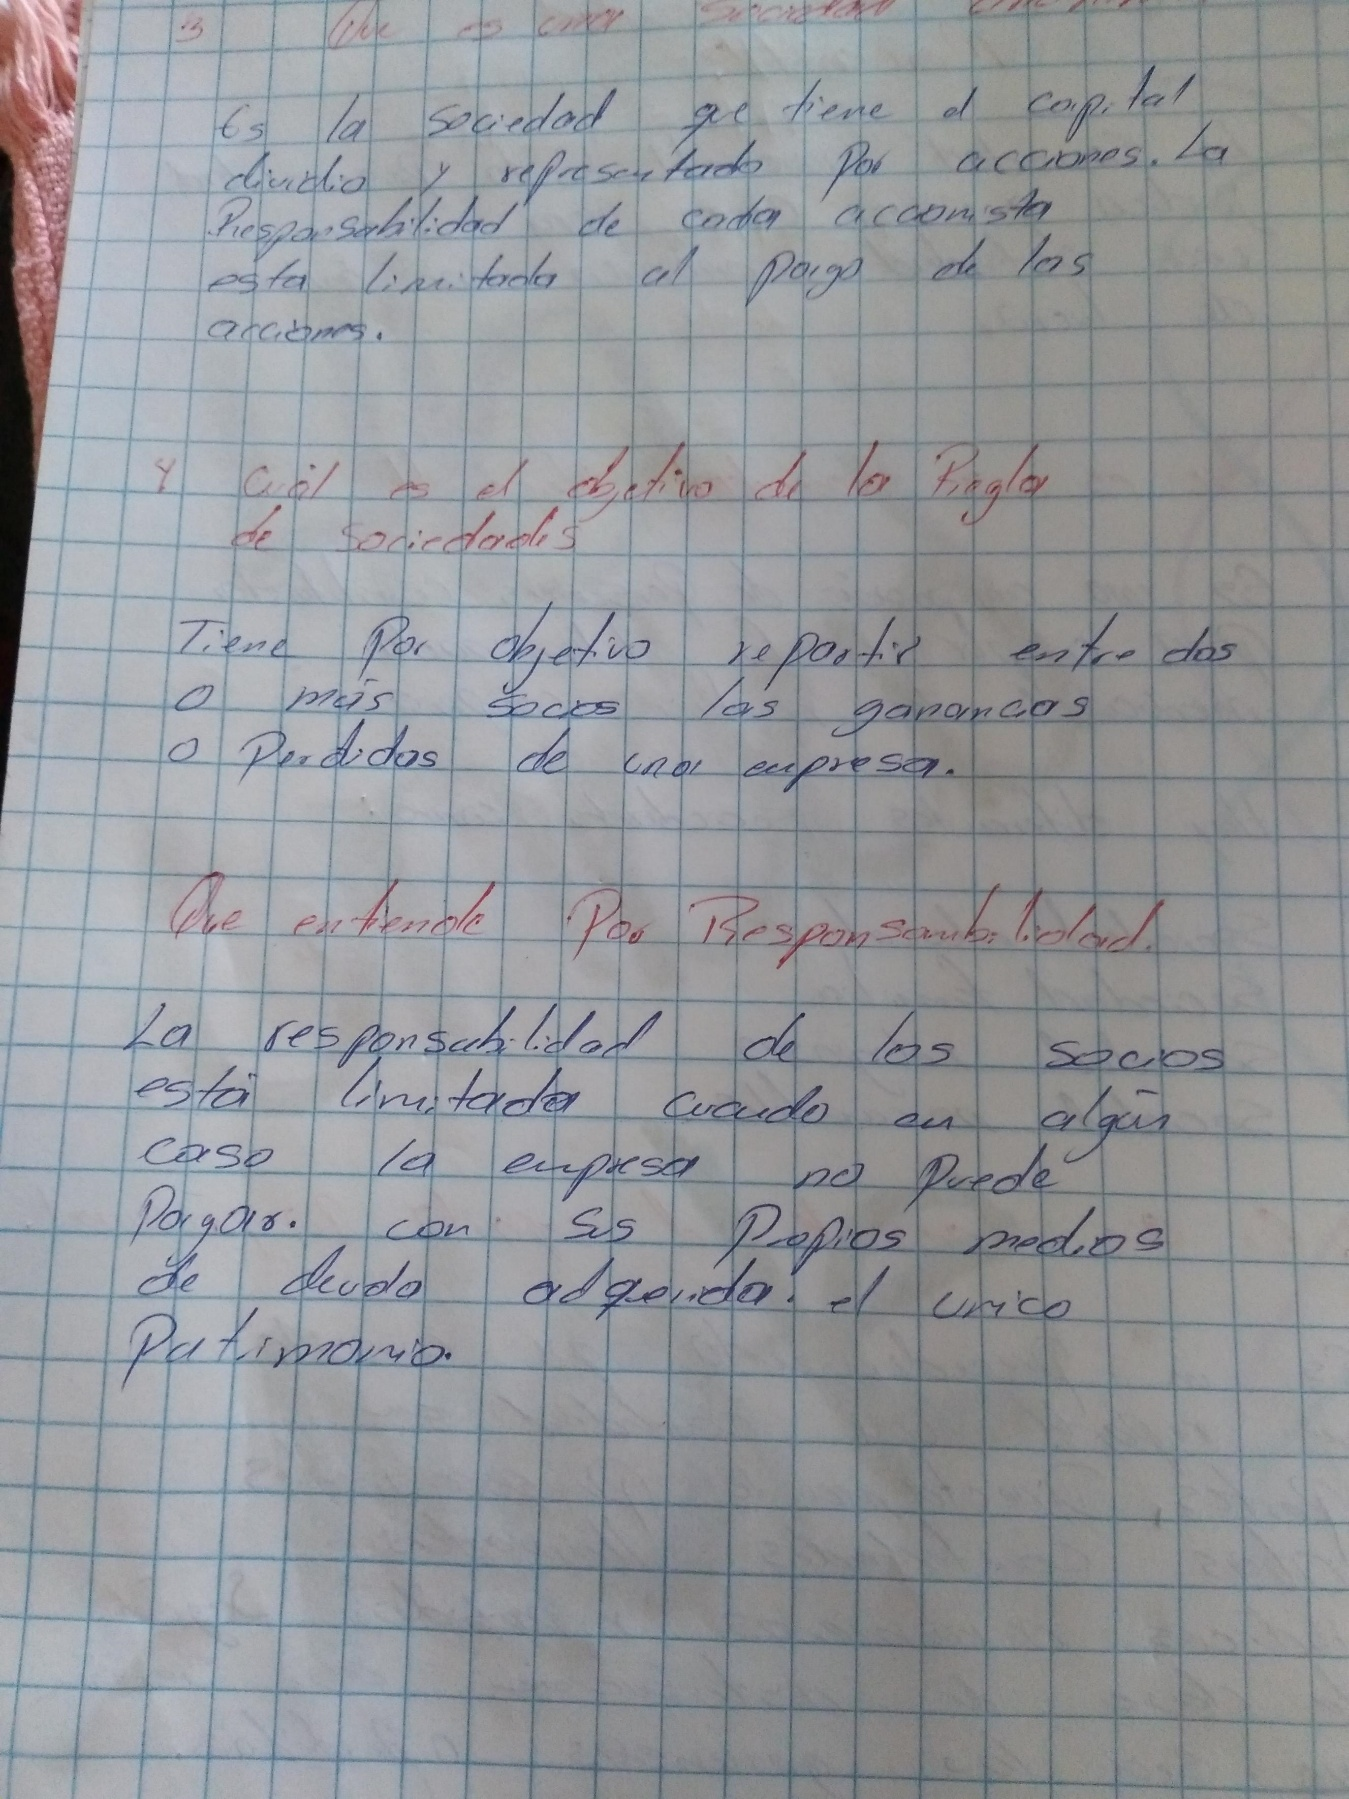 3 Que es una Sociedad
Es la sociedad que tiene el capital
dividio y representado por acciones. La
Responsabilidad de cada accionista
esta limitada al pago de las
acciones.
4 Cuál es el objetivo de la Riegla
de sociedades
Tiene Por objetivo repartir entre dos
o más socios las ganancias
o Perdidas de una empresa.
Que entiende Por Responsambilidad.
La responsabilidad de los socios
está limitada cuando en algún
caso la empresa no Puede
Pagar. con sus Propios medios
de deuda adquerida. el unico
Patrimonio.